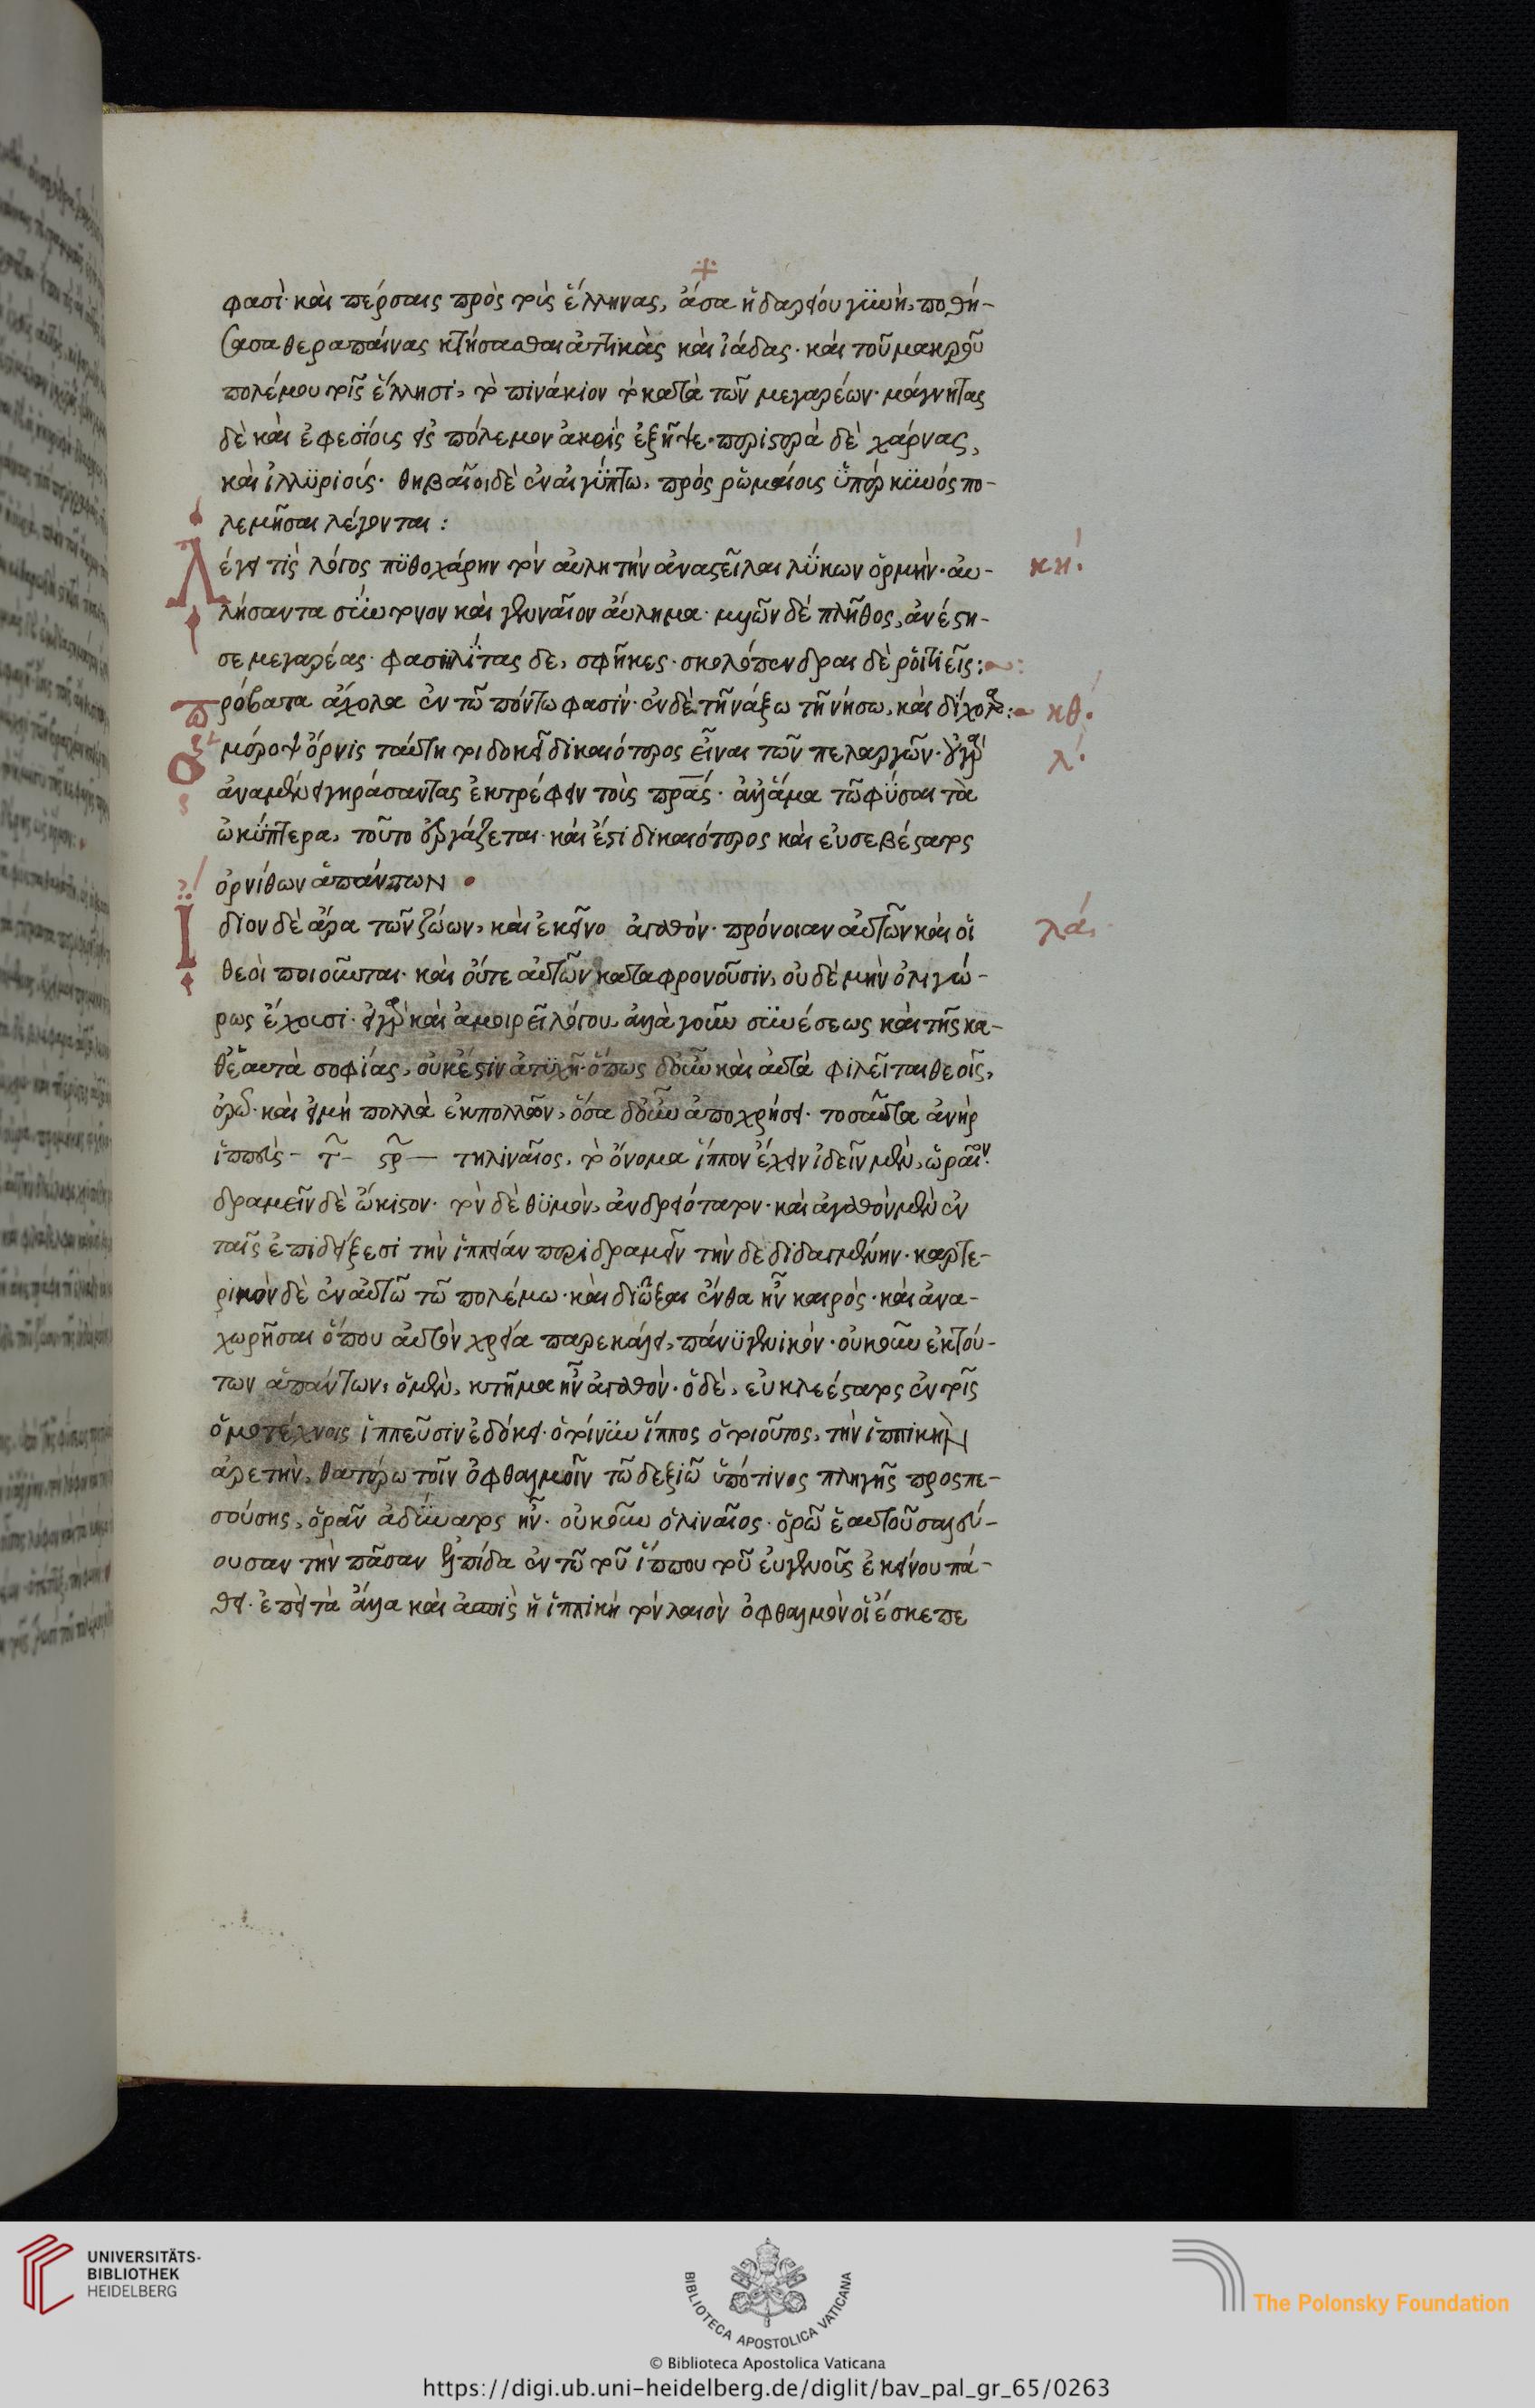 φασὶ· καὶ πέρσαις πρὸς τοὺς ἕλληνας, ἄτοσα ἡ δαρείου γυνὴ, ποθή-
σασα θεραπαίνας κτήσασθαι ἀττικὰς καὶ ἰάδας· καὶ τοῦ μακροῦ
πολέμου τοῖς ἕλλησι, τὸ πινάκιον τὸ κατὰ τῶν μεγαρέων· μάγνητας
δὲ καὶ ἐφεσίοις εἰς πόλεμον ἀκρὶς ἐξῆψε· περιστερὰ δὲ χάονας,
καὶ ἰλλυριούς· θηβαῖοι δὲ ἐν αἰγύπτω, πρὸς ῥωμαίοις ὑπὲρ κυνός πο-
λεμῆσαι λέγονται:
Λέγει τίς λόγος πυθοχάρην τὸν αὐλητὴν ἀναστεῖλαι λύκων ὁρμὴν· αὐ-
κη´.
λήσαντα σύντονον καὶ γενναῖον αὔλημα· μυῶν δὲ πλῆθος, ἀνέστη-
σε μεγαρέας· φασιλίτας δε, σφῆκες· σκολόπενδραι δὲ ῥοιτιεῖς:
Πρόβατα ἄχολα ἐν τῶ πόντω φασίν· ἐν δὲ τῆ νάξω τῆ νήσω, καὶ δίχολα:
κθ´.
Ὁ μέροψ ὄρνις ταύτη τοι δοκεῖ δικαιότερος εἶναι τῶν πελαργῶν· οὐ γὰρ
λ´.
ἀναμένει γηράσαντας ἐκτρέφειν τοὺς πρας· ἀλλ' ἅμα τῶ φύσαι τὰ
ὠκύπτερα, τοῦτο ἐργάζεται· καὶ ἔστι δικαιότερος καὶ εὐσεβέστατος
ὀρνίθων ἁπάντων
Ἴδιον δὲ ἄρα τῶν ζώων, καὶ ἐκεῖνο ἀγαθὸν· πρόνοιαν αὐτῶν καὶ οἱ
λά.
θεοὶ ποιοῦνται· καὶ οὔτε αὐτῶν καταφρονοῦσιν, οὐδὲ μὴν ὀλιγώ-
ρως ἔχουσι· εἰ γὰρ καὶ ἀμοιρεῖ λόγου, ἀλλὰ γοῦν συνέσεως καὶ τῆς κα-
θ' ἑαυτὰ σοφίας, οὐκ ἔστιν ἀτυχῆ· ὅπως δ' οὖν καὶ αὐτὰ φιλεῖται θεοῖς,
ἐρῶ· καὶ εἰ μὴ πολλὰ ἐκ πολλῶν, ὅσα δ' οὖν ἀποχρήσει· τοσαῦτα ἀνὴρ
ἱππεὺς - τ - στρ — τηλιναῖος, τὸ ὄνομα ἵππον ἔχειν ἰδεῖν μὲν, ὡραῖον·
δραμεῖν δὲ ὤκιστον· τὸν δὲ θυμὸν, ἀνδρειότατον· καὶ ἀγαθὸν μὲν ἐν
ταῖς ἐπιδείξεσι τὴν ἱππείαν περιδραμεῖν τὴν δεδιδαγμένην· καρτε-
ρικὸν δὲ ἐν αὐτῶ τῶ πολέμω· καὶ διῶξαι ἔνθα ἦν καιρός· καὶ ἀνα-
χωρῆσαι ὅπου αὐτὸν χρεία παρεκάλει, πάνυ γενικὸν· οὐκοῦν ἐκ τού-
των ἁπάντων, ὁ μὲν, κτῆμα ἦν ἀγαθὸν· ὁ δὲ, εὐκλεέστατος ἐν τοῖς
ὁμοτέχνοις ἱππεῦσιν ἐδόκει· ὁ τοίνυν ἵππος ὁ τοιοῦτος, τὴν ἱππικὴν
ἀρετὴν, θατέρω τοῖν ὀφθαλμοῖν τῶ δεξιῶ ὑπό τινος πληγῆς προσπε-
σούσης, ὁρᾶν ἀδύνατος ἦν· οὐκοῦν ὁ λιναῖος· ὁρῶ ἑαυτοῦ σαλεύ-
ουσαν τὴν πᾶσαν ἐλπίδα ἐν τῶ τοῦ ἵππου τοῦ εὐγενοῦς ἐκείνου πά-
θει· ἐπεὶ τὰ ἄλλα καὶ ἀσπὶς ἡ ἱππικὴ τὸν λαιὸν ὀφθαλμὸν οἱ ἔσκεπε
UNIVERSITÄTS-
BIBLIOTHEK
HEIDELBERG
BIBLIOTECA APOSTOLICA VATICANA
The Polonsky Foundation
© Biblioteca Apostolica Vaticana
https://digi.ub.uni-heidelberg.de/diglit/bav_pal_gr_65/0263